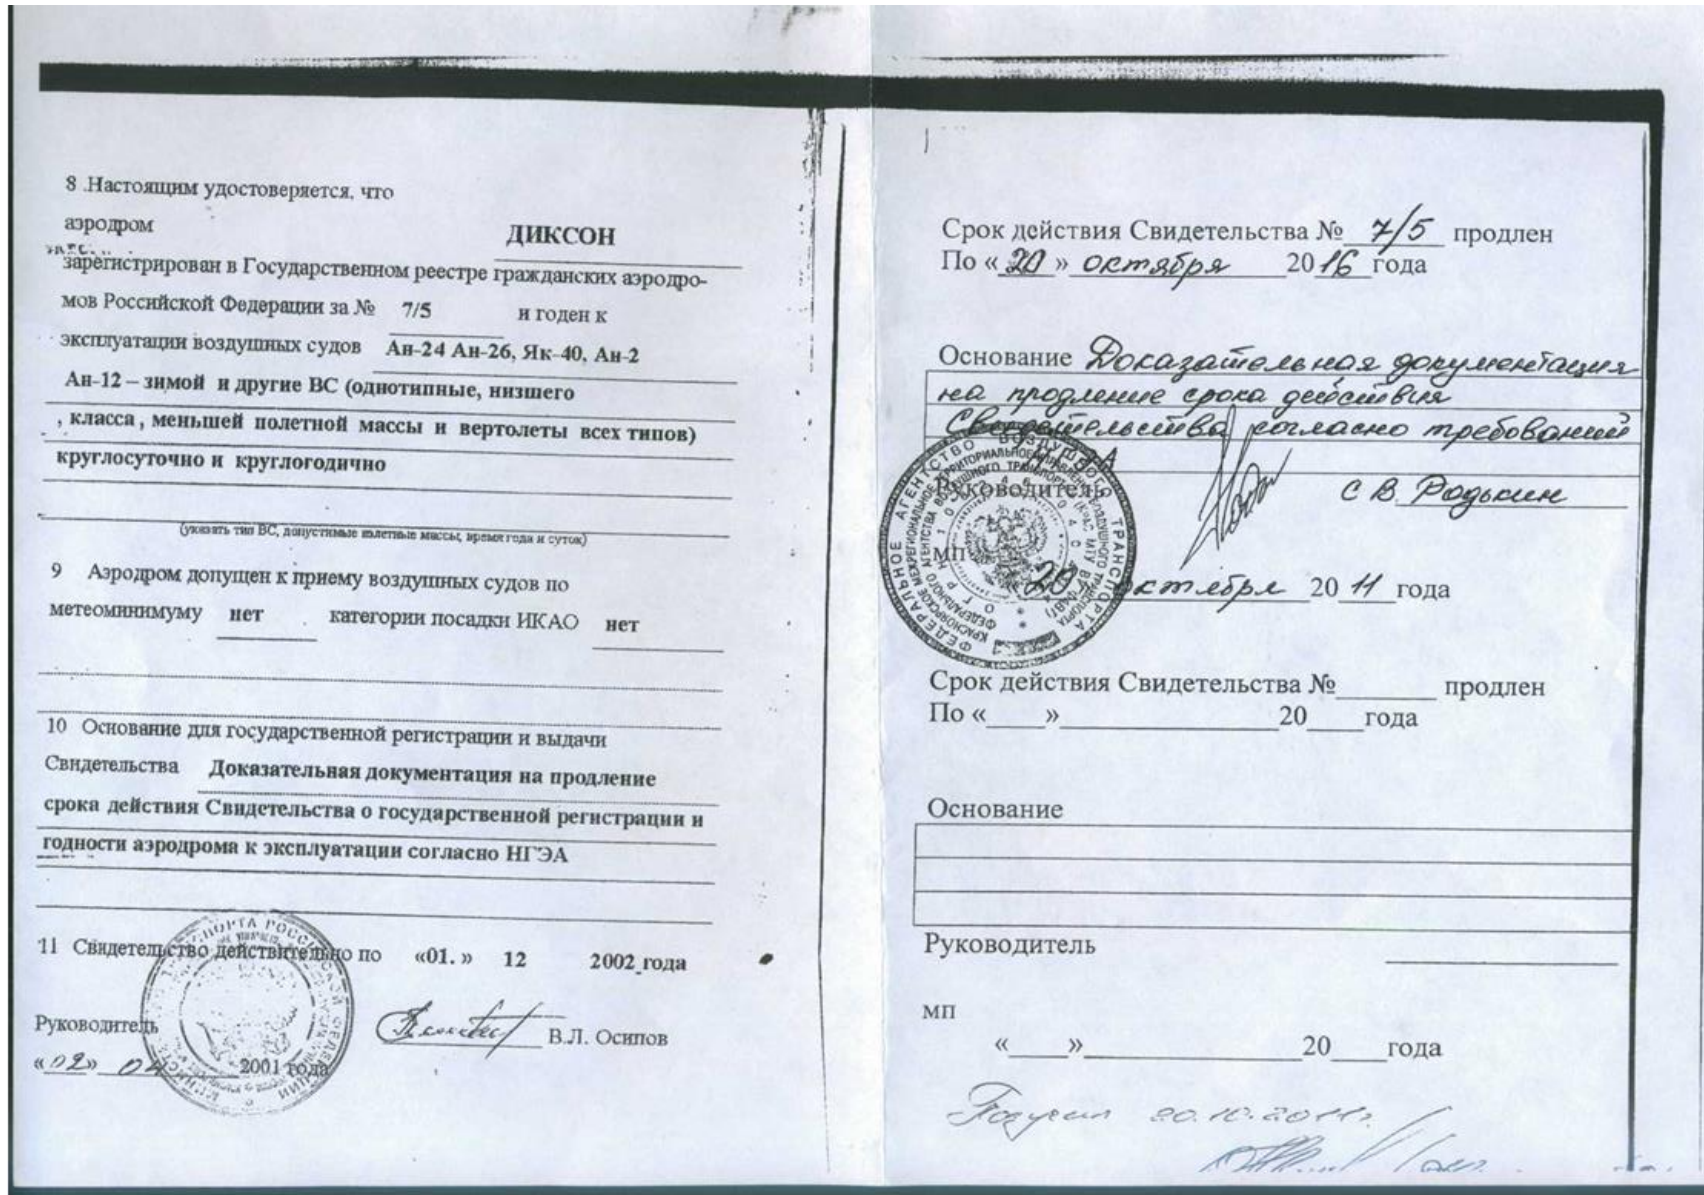 8 .Настоящим удостоверяется, что
аэродром ДИКСОН
зарегистрирован в Государственном реестре гражданских аэродро-
мов Российской Федерации за № 7/5 и годен к
эксплуатации воздушных судов Ан-24 Ан-26, Як-40, Ан-2
Ан-12 – зимой и другие ВС (однотипные, низшего
, класса, меньшей полетной массы и вертолеты всех типов)
круглосуточно и круглогодично
(указать тип ВС, допустимые взлетные массы, время года и суток)
9 Аэродром допущен к приему воздушных судов по
метеоминимуму нет категории посадки ИКАО нет
10 Основание для государственной регистрации и выдачи
Свидетельства Доказательная документация на продление
срока действия Свидетельства о государственной регистрации и
годности аэродрома к эксплуатации согласно НГЭА
11 Свидетельство действительно по «01. » 12 2002 года
Руководитель В.Л. Осипов
«02» 04 2001 года
Срок действия Свидетельства № 7/5 продлен
По «20» октября 2016 года
Основание Доказательная документация
на продление срока действия
Свидетельства согласно требований
Руководитель С В. Родькин
ФЕДЕРАЛЬНОЕ АГЕНТСТВО ВОЗДУШНОГО ТРАНСПОРТА
МП
«20 октября 2011 года
Срок действия Свидетельства №______ продлен
По «____»________________20____года
Основание
Руководитель
МП
«____»________________20____года
20.10.2011г.